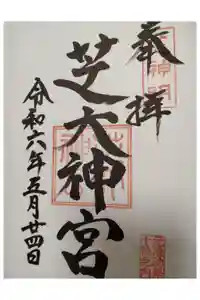 奉拝
芝大神宮
令和六年五月廿四日